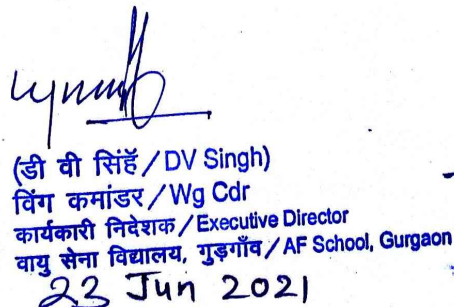 (डी वी सिंहॅ / DV Singh)
विंग कमांडर / Wg Cdr
कार्यकारी निदेशक / Executive Director
वायु सेना विद्यालय, गुड़गाँव / AF School, Gurgaon
23 Jun 2021